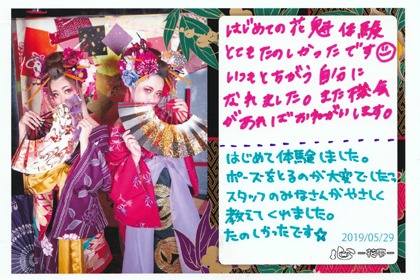 はじめての花魁体験
とてもたのしかったです
いつもとちがう自分に
なれました。また機会
があればおねがいします。
はじめて体験しました。
ポーズをとるのが大変でしたっ
スタッフのみなさんがやさしく
教えてくれました。
たのしかったです☆
2019/05/29
心 -花夢-